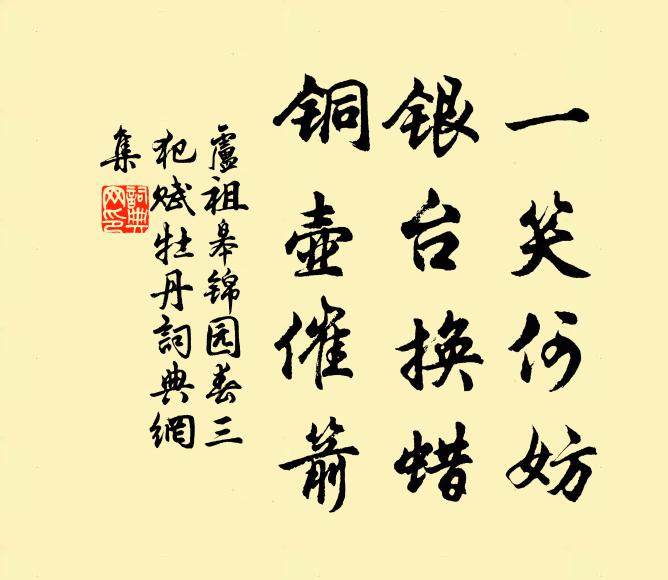 一笑何妨
银台换蜡
铜壶催箭
盧祖皋锦园春三
犯赋牡丹詞典網
集
詞典
网印